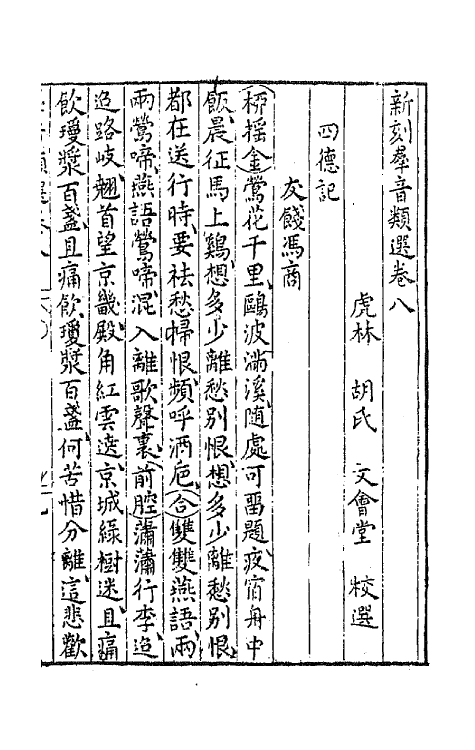 新刻羣音類選卷八
虎林　胡氏　文會堂　校選
四德記
友餞馮商
桺揺金鶯花千里鷗波滿溪随處可畱題夜宿舟中
飯晨征馬上鷄想多少離愁别恨想多少離愁别恨
都在送行時要袪愁掃恨頻呼洒巵合雙雙燕語兩
兩鶯啼燕語鶯啼混入離歌聲裏前腔蕭蕭行李迢
迢路岐翹首望京畿殿角紅雲遶京城綠樹迷且痛
飲瓊漿百盞且痛飲瓊漿百盞何苦惜分離這悲歡